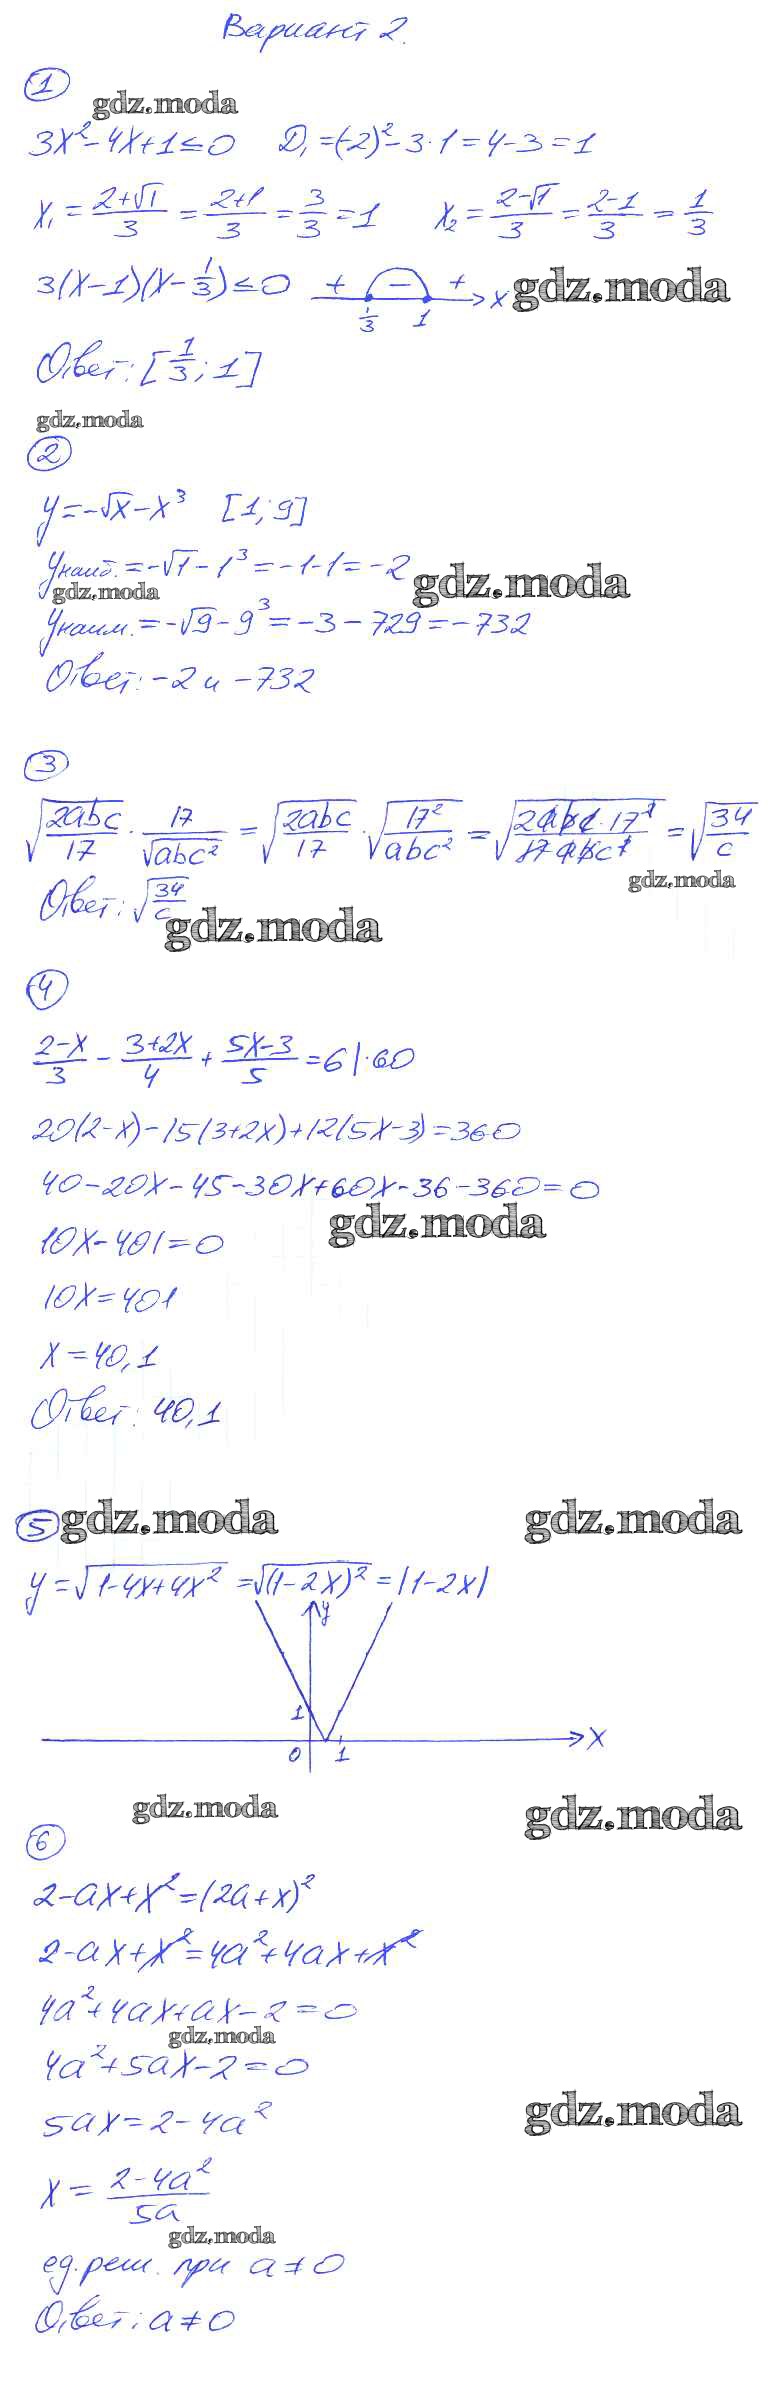 Вариант 2.
1
gdz.moda
3x² - 4x + 1 ≤ 0 D₁ = (-2)² - 3·1 = 4 - 3 = 1
x₁ = (2+√1)/3 = (2+1)/3 = 3/3 = 1 x₂ = (2-√1)/3 = (2-1)/3 = 1/3
3(x-1)(x-1/3) ≤ 0 + - + x gdz.moda
1/3 1
Ответ: [1/3; 1]
gdz.moda
2
y = -√x - x³ [1; 9]
yнаиб. = -√1 - 1³ = -1-1 = -2
gdz.moda gdz.moda
yнаим. = -√9 - 9³ = -3 - 729 = -732
Ответ: -2 и -732
3
√(2abc/17) · 17/√(abc²) = √(2abc/17) · √(17²/(abc²)) = √((2abc·17²)/(17abc²)) = √(34/c)
gdz.moda
Ответ: √(34/c)
gdz.moda
4
(2-x)/3 - (3+2x)/4 + (5x-3)/5 = 6 |·60
20(2-x) - 15(3+2x) + 12(5x-3) = 360
40 - 20x - 45 - 30x + 60x - 36 - 360 = 0
gdz.moda
10x - 401 = 0
10x = 401
x = 40,1
Ответ: 40,1
5 gdz.moda gdz.moda
y = √(1-4x+4x²) = √((1-2x)²) = |1-2x|
y
1
x
0 1
gdz.moda gdz.moda
6
2 - ax + x² = (2a+x)²
2 - ax + x² = 4a² + 4ax + x²
4a² + 4ax + ax - 2 = 0
gdz.moda
4a² + 5ax - 2 = 0
gdz.moda
5ax = 2 - 4a²
x = (2-4a²)/5a
gdz.moda
ед. реш. при a ≠ 0
Ответ: a ≠ 0